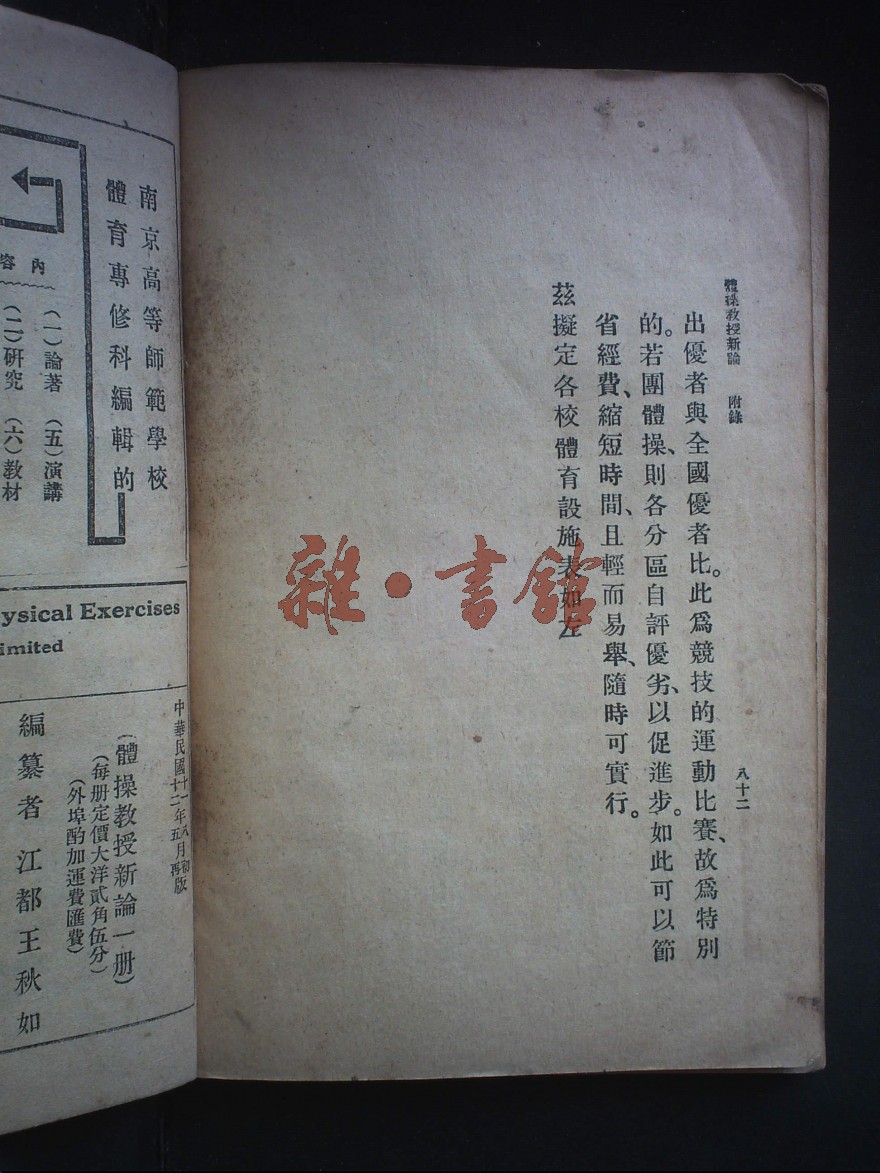 體操教授新論　附錄
八十二
出優者與全國優者比。此爲競技的運動比賽、故爲特別
的。若團體操、則各分區自評優劣、以促進步。如此可以節
省經費、縮短時間、且輕而易舉、隨時可實行。
茲擬定各校體育設施表如左
雜·書館
南京高等師範學校
體育專修科編輯的
內容
(一)論著　(五)演講
(二)研究　(六)教材
ysical Exercises
imited
中華民國十一年八月初版
十二年五月再版
(體操教授新論一册)
(每册定價大洋貳角伍分)
(外埠酌加運費匯費)
編纂者　江都王秋如